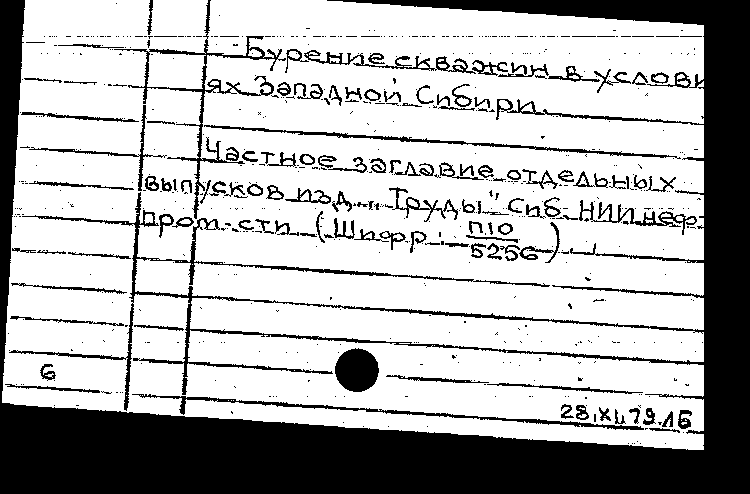 Бурение скважин в услови
ях Западной Сибири.
Частное заглавие отдельных
выпусков изд. „Труды" Сиб. НИИ неф-
пром-сти (Шифр: П10/5256).
6
28.XII.79.